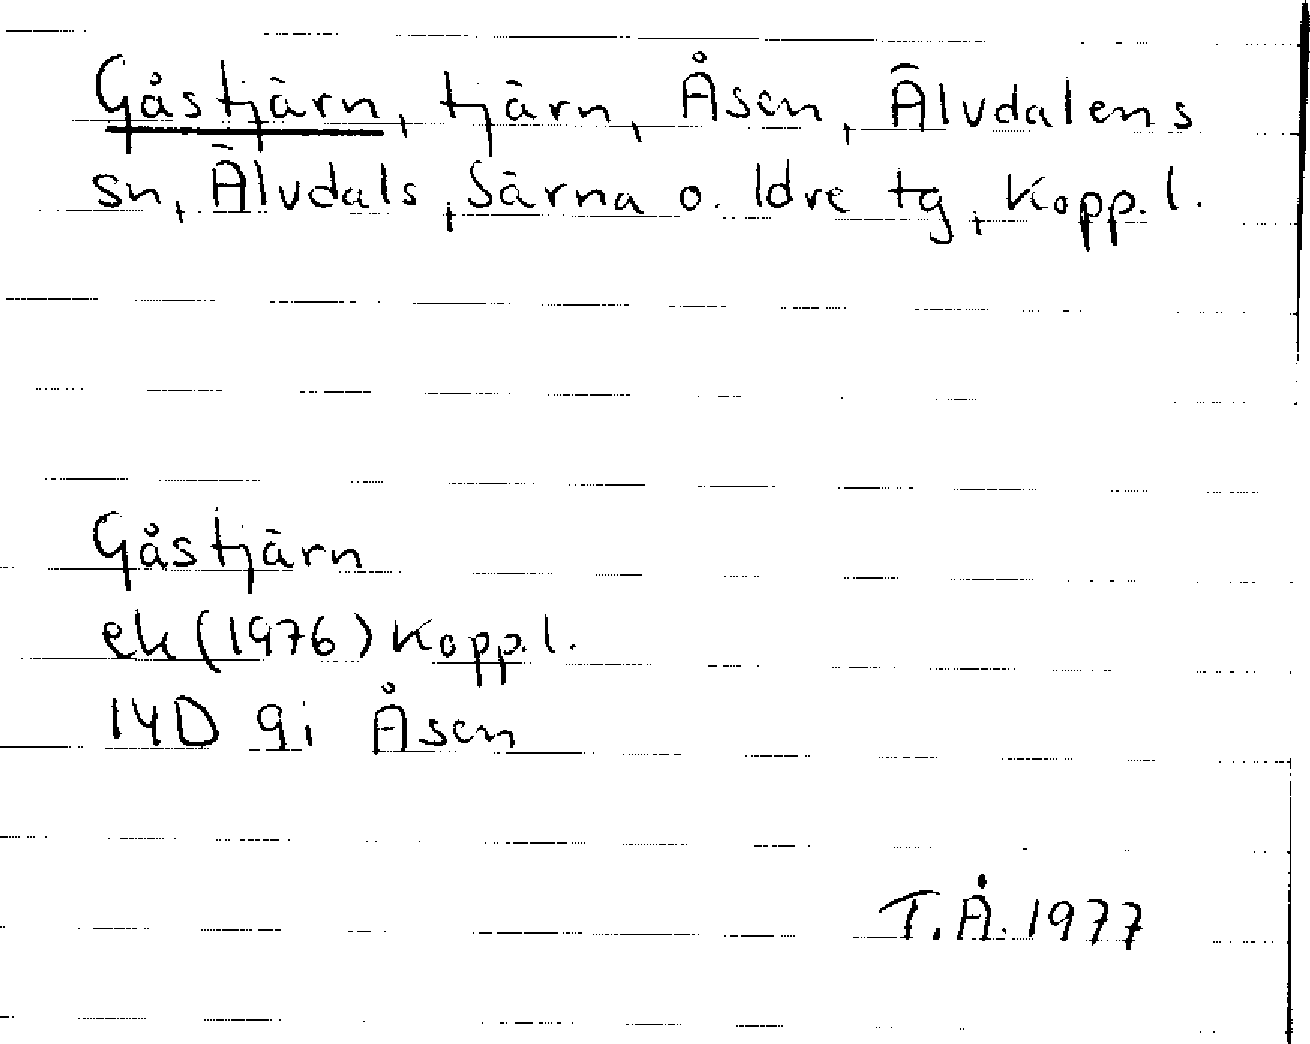 Gåstjärn, tjärn, Åsen, Älvdalens
sn, Älvdals, Särna o. Idre tg, Kopp. l.
Gåstjärn
ek (1976) Kopp. l.
14D 9i Åsen
T.Å. 1977